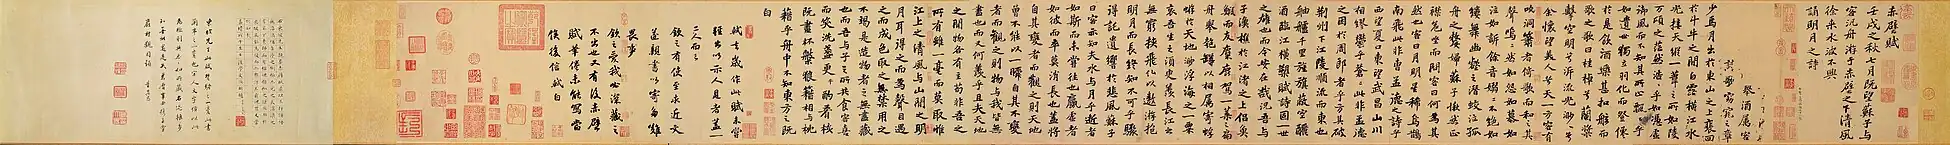 赤壁賦
壬戌之秋七月既望蘇子與
客泛舟游于赤壁之下清風
徐來水波不興
舉酒屬客
誦明月之詩
歌窈窕之章
少焉月出於東山之上裴回
於斗牛之間白露橫江水
光接天縱一葦之所如陵
萬頃之茫然浩浩乎如馮虛
御風而不知其所止飄飄乎
如遺世獨立羽化而登僊
於是飲酒樂甚扣舷而
歌之歌曰桂棹兮蘭槳
擊空明兮泝流光渺渺兮
余懷望美人兮天一方客有
吹洞簫者倚歌而和之其
聲嗚嗚然如怨如慕如
泣如訴餘音嫋嫋不絕如
縷舞幽壑之潛蛟泣孤
舟之嫠婦蘇子愀然正
襟危坐而問客曰何為其
然也客曰月明星稀烏鵲
南飛此非曹孟德之詩乎
西望夏口東望武昌山川
相繆鬱乎蒼蒼此非孟德
之困於周郎者乎方其破
荊州下江陵順流而東也
舳艫千里旌旗蔽空釃
酒臨江橫槊賦詩固一世
之雄也而今安在哉況吾與
子漁樵於江渚之上侶魚
鰕而友麋鹿駕一葉之扁
舟舉匏樽以相屬寄蜉
蝣於天地渺浮海之一粟
哀吾生之須臾羨長江之
無窮挾飛仙以遨遊抱
明月而長終知不可乎驟
得託遺響於悲風蘇子
曰客亦知夫水與月乎逝者
如斯而未嘗往也贏虛者
如彼而卒莫消長也蓋將
自其變者而觀之則天地
曾不能以一瞬自其不變
者而觀之則物與我皆無
盡也而又何羨乎且夫天地
之間物各有主苟非吾之
所有雖一毫而莫取惟
江上之清風與山間之明
月耳得之而為聲目遇
之而成色取之無禁用之
不竭是造物者之無盡藏
也而吾與子之所共食客喜
而笑洗盞更酌肴核
既盡杯盤狼藉相與枕
藉乎舟中不知東方之既
白
軾去歲作此賦未嘗
輕出以示人見者蓋一
二人而已
欽之有使至求近文
遂親書以寄多難
畏事
欽之愛我必深藏之
不出也又有後赤壁
賦筆倦未能寫當
俟後信軾白